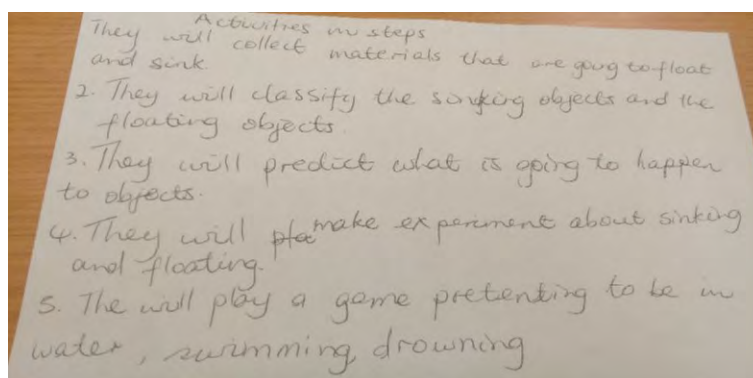 Activities in steps
They will collect materials that are going to float
and sink
2. They will classify the sinking objects and the
floating objects.
3. They will predict what is going to happen
to objects.
4. They will make experiment about sinking
and floating.
5. The will play a game pretenting to be in
water, swimming, drowning